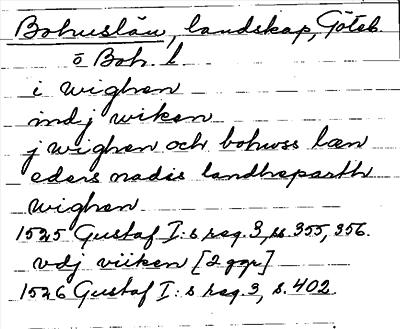 Bohuslän, landskap, Göteb.
o Boh. l
i wighen
indj wiken
j wighen och bohwss læn
eders nadis landheparth
wighen
1525 Gustaf I:s reg. 3, ss. 355, 356.
vdj viiken [2 ggr]
1526 Gustaf I:s reg. 3, s. 402.